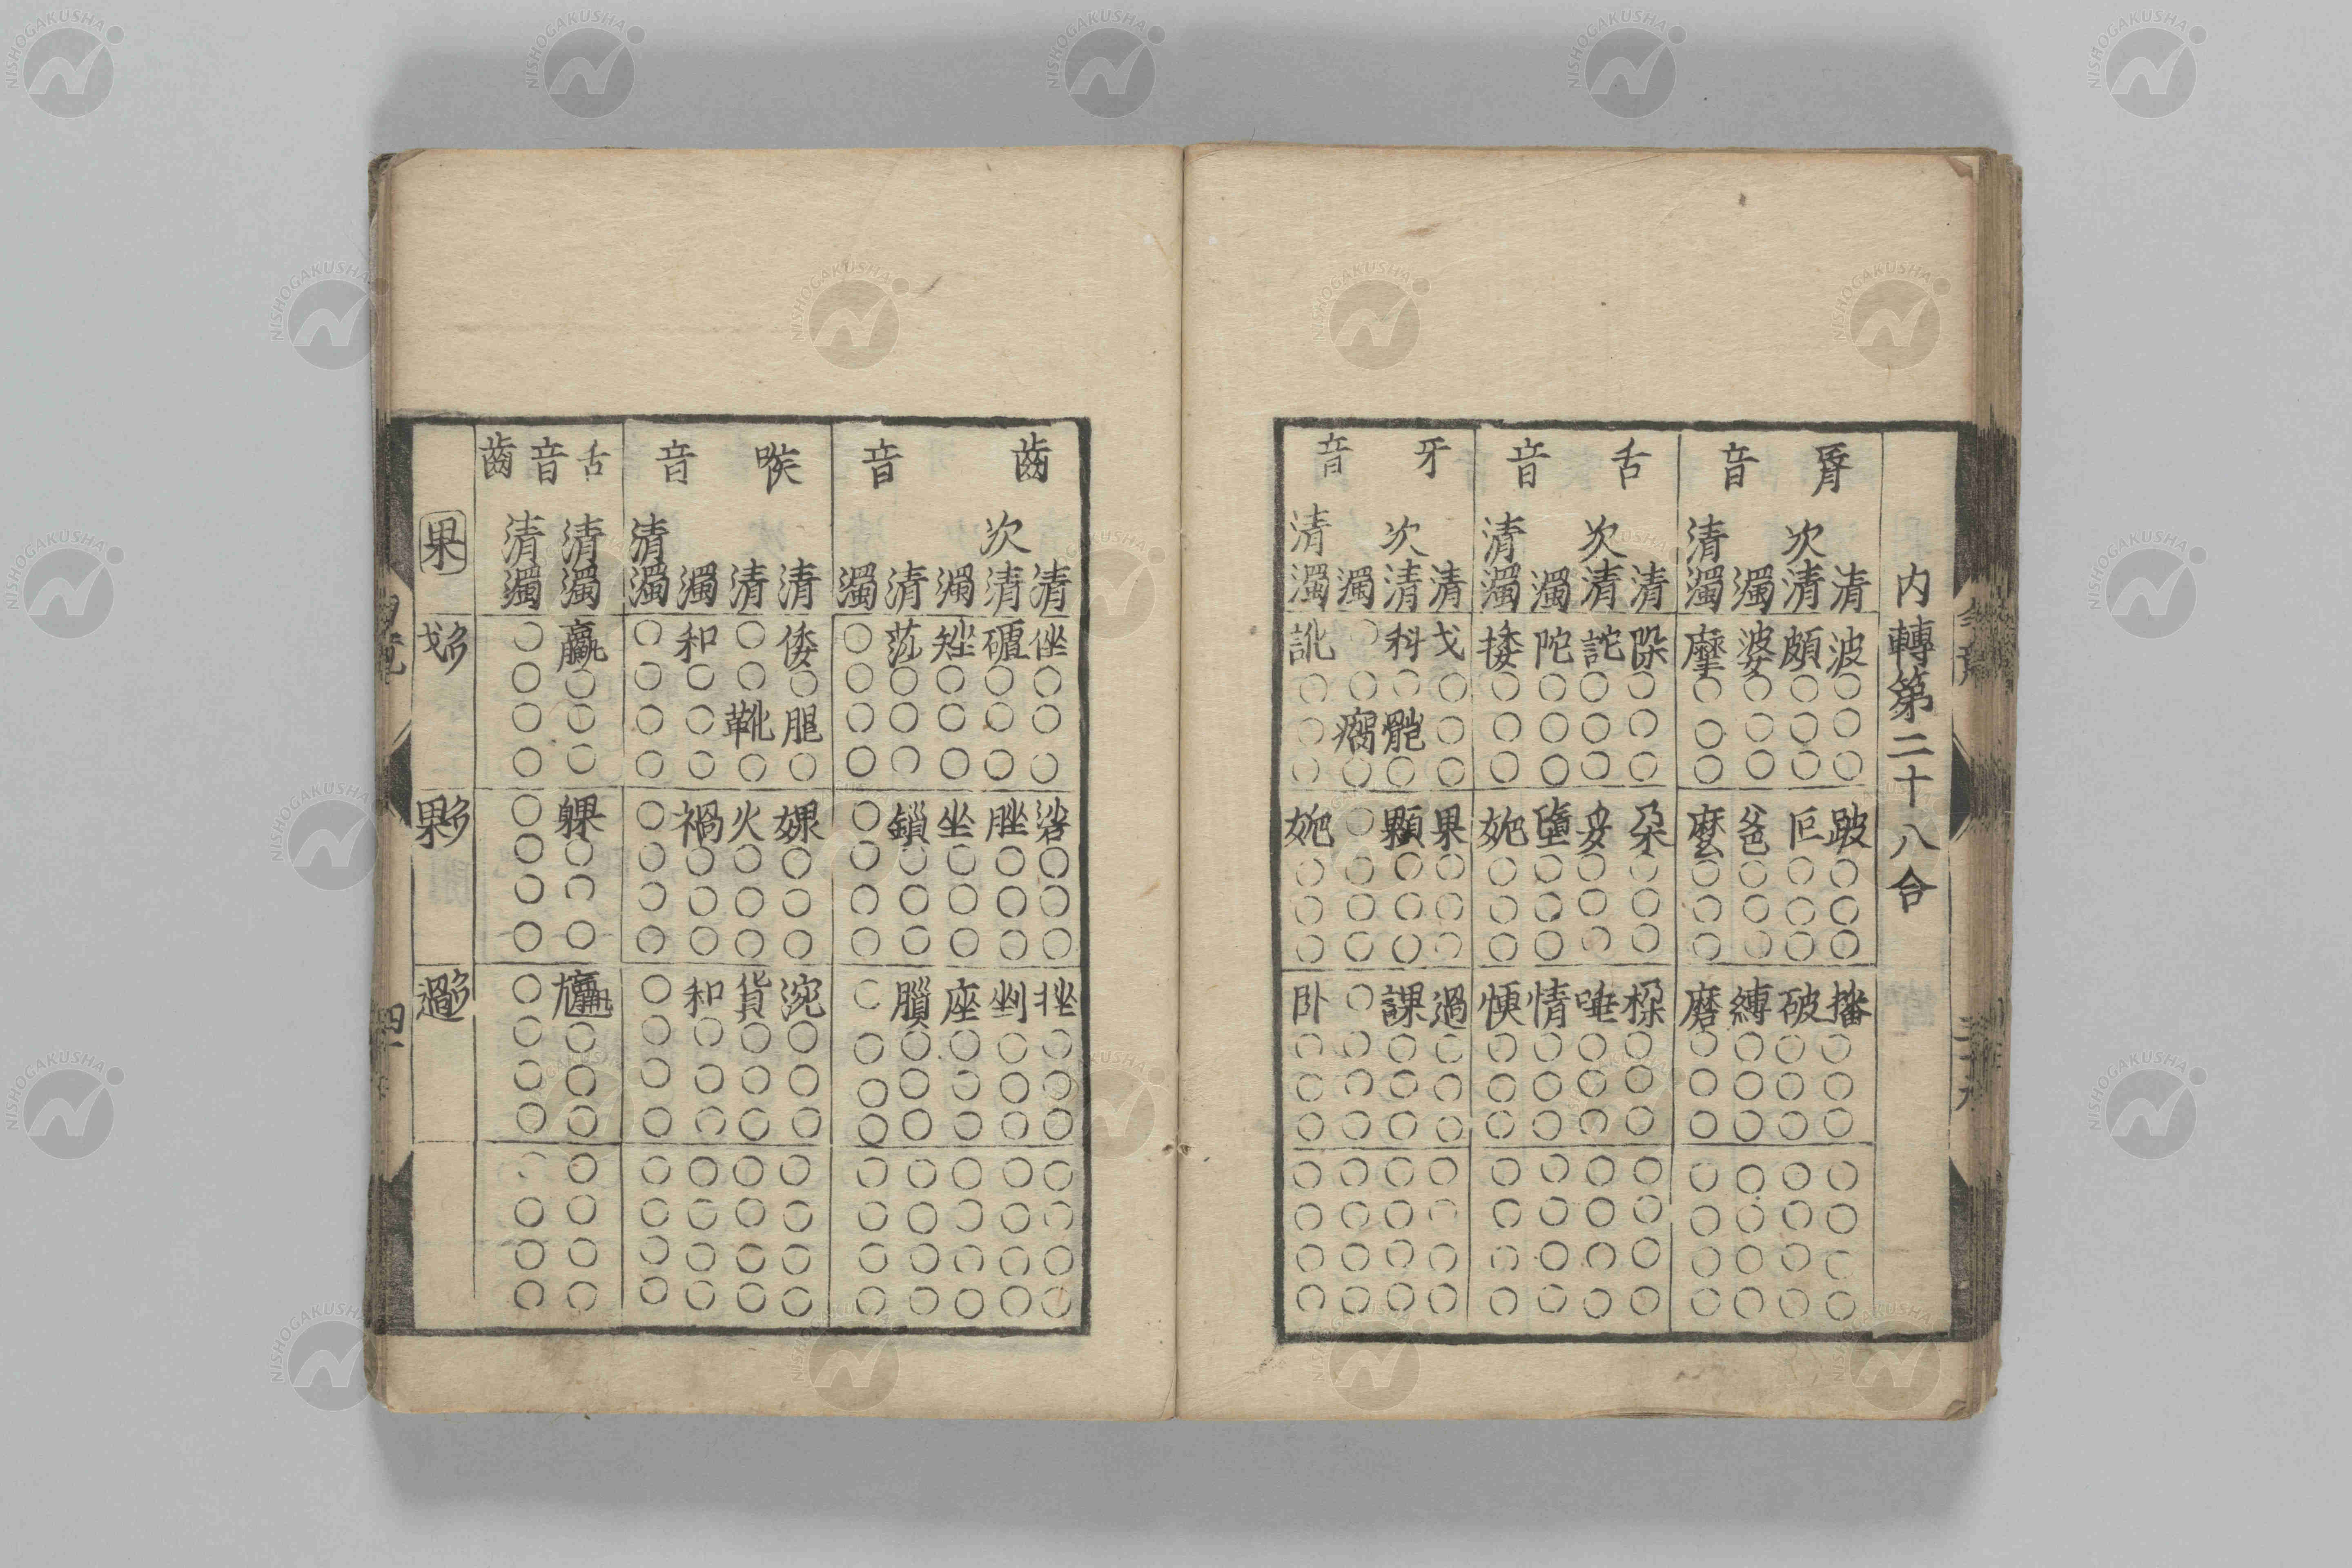 内轉第二十八合
脣音 舌音 牙音
清 次清 濁 清濁 清 次清 濁 清濁 清 次清 濁 清濁
波頗婆摩 詑陀捼 戈科○訛
○○○○ ○○○○ ○○○○
○○○○ ○○○○ ○䯢瘸○
○○○○ ○○○○ ○○○○
跛叵爸麼 朶妥墮妮 果顆○妮
○○○○ ○○○○ ○○○○
○○○○ ○○○○ ○○○○
○○○○ ○○○○ ○○○○
播破縛磨 桗唾惰愞 過課○臥
○○○○ ○○○○ ○○○○
○○○○ ○○○○ ○○○○
○○○○ ○○○○ ○○○○
○○○○ ○○○○ ○○○○
○○○○ ○○○○ ○○○○
○○○○ ○○○○ ○○○○
○○○○ ○○○○ ○○○○
齒音 喉音 舌音齒
清 次清 濁 清 濁 清 清 濁 清濁 清濁 清濁
矬莎○ 倭○和○ 臝○ 戈
○○○○○ ○○○○ ○○
○○○○○ 靴○○ ○○
○○○○○ ○○○○ ○○
坐鎖○ 婐火禍○ 躶○ 果
○○○○○ ○○○○ ○○
○○○○○ ○○○○ ○○
○○○○○ ○○○○ ○○
挫剉座膹○ 涴貨和○ ○ 過
○○○○○ ○○○○ ○○
○○○○○ ○○○○ ○○
○○○○○ ○○○○ ○○
○○○○○ ○○○○ ○○
○○○○○ ○○○○ ○○
○○○○○ ○○○○ ○○
○○○○○ ○○○○ ○○
果
NISHOGAKUSHA